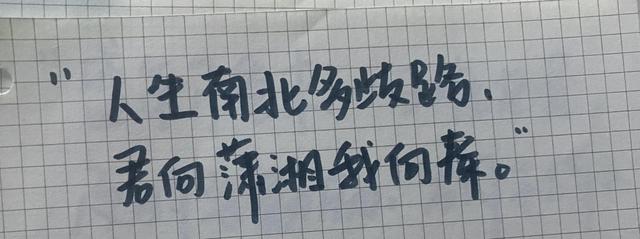 “人生南北多歧路，
君向潇湘我向秦。”